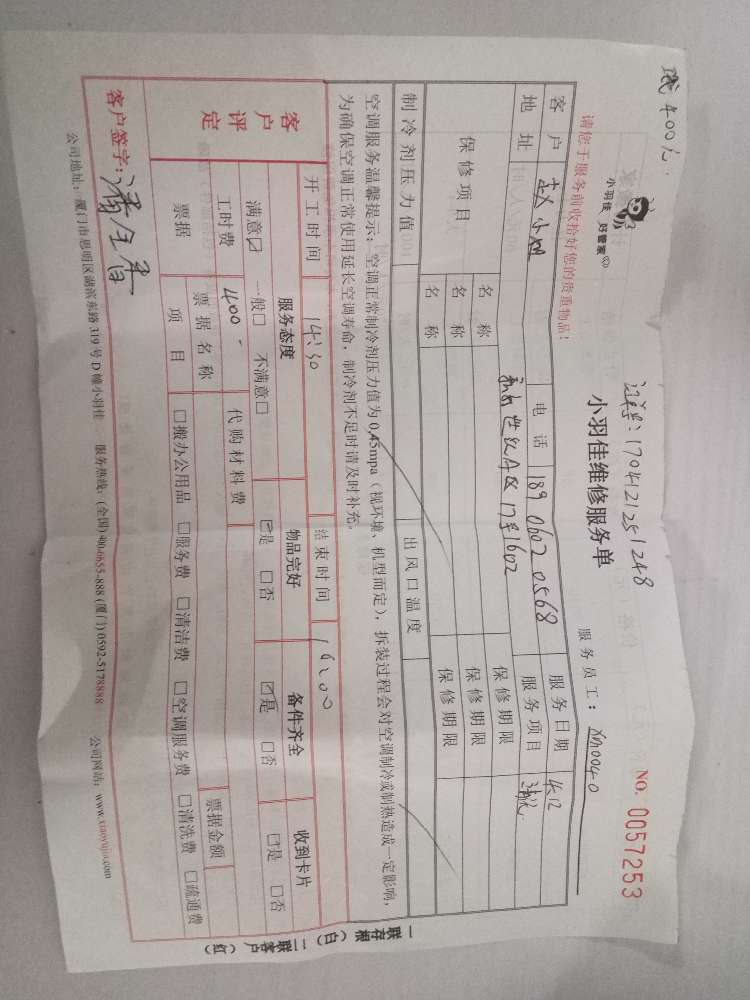 400元
小羽佳 好管家
1704121251248
小羽佳维修服务单
NO. 0057253
请您于服务前收拾好您的贵重物品!
服务员工: XM0040
客户 小姐 电话 189 0602 0568 服务日期 4.12
地址 A区17号1602 服务项目 清洗
保修项目 名称 保修期限
名称 保修期限
名称 保修期限
制冷剂压力值 出风口温度
空调服务温馨提示:空调正常制冷剂压力值为0.45mpa(视环境、机型而定),拆装过程会对空调制冷或制热造成一定影响,
为确保空调正常使用延长空调寿命,制冷剂不足时请及时补充。
开工时间 14:30 结束时间 18:00
客户评定 服务态度 物品完好 备件齐全 收到卡片
满意☑ 一般□ 不满意□ ☑是 □否 ☑是 □否 ☑是 □否
工时费 400- 代购材料费
票据 票据名称 票据金额
项目 □搬办公用品 □服务费 □清洁费 □空调服务费 □清洗费 □疏通费
客户签字:
公司地址:厦门市思明区湖滨东路319号D幢小羽佳 服务热线:(全国)400-0655-888 (厦门)0592-5178888 公司网站:www.xiaoyujia.com
一联存根(白) 二联客户(红)